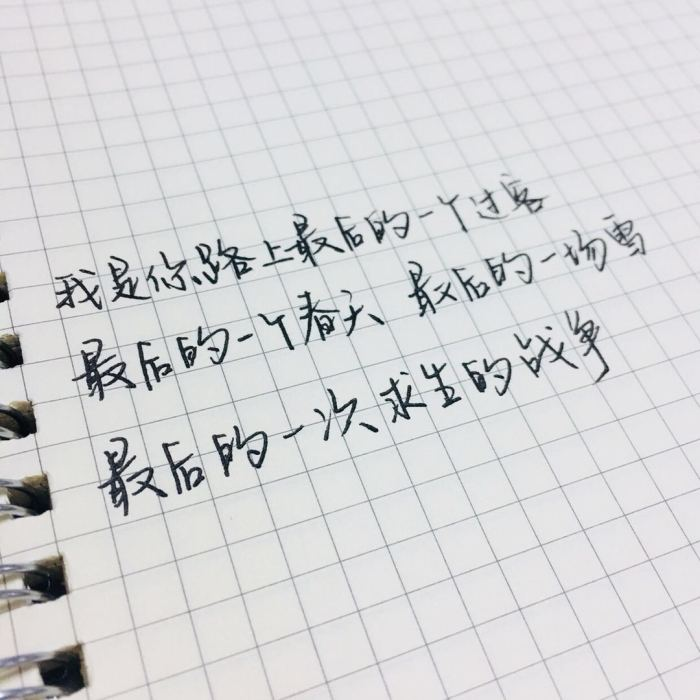 我是你路上最后的一个过客
最后的一个春天 最后的一场雪
最后的一次求生的战争